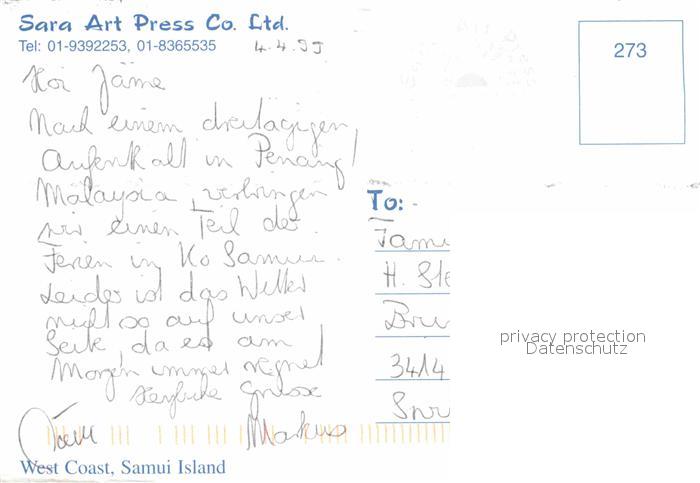 Sara Art Press Co. Ltd.
Tel: 01-9392253, 01-8365535
4.4.95
273
Hoi Jäme
Nach einem dreitägigen
Aufenhalt in Penang/
Malaysia, verbringen
wir einen Teil der
Ferien in Ko Samui.
Leider ist das Wetter
nicht so auf unser
Seite, da es am
Morgen immer regnet
Herzliche Grüsse
Markus
To:
H. Ste
Bru
3414
privacy protection
Datenschutz
West Coast, Samui Island